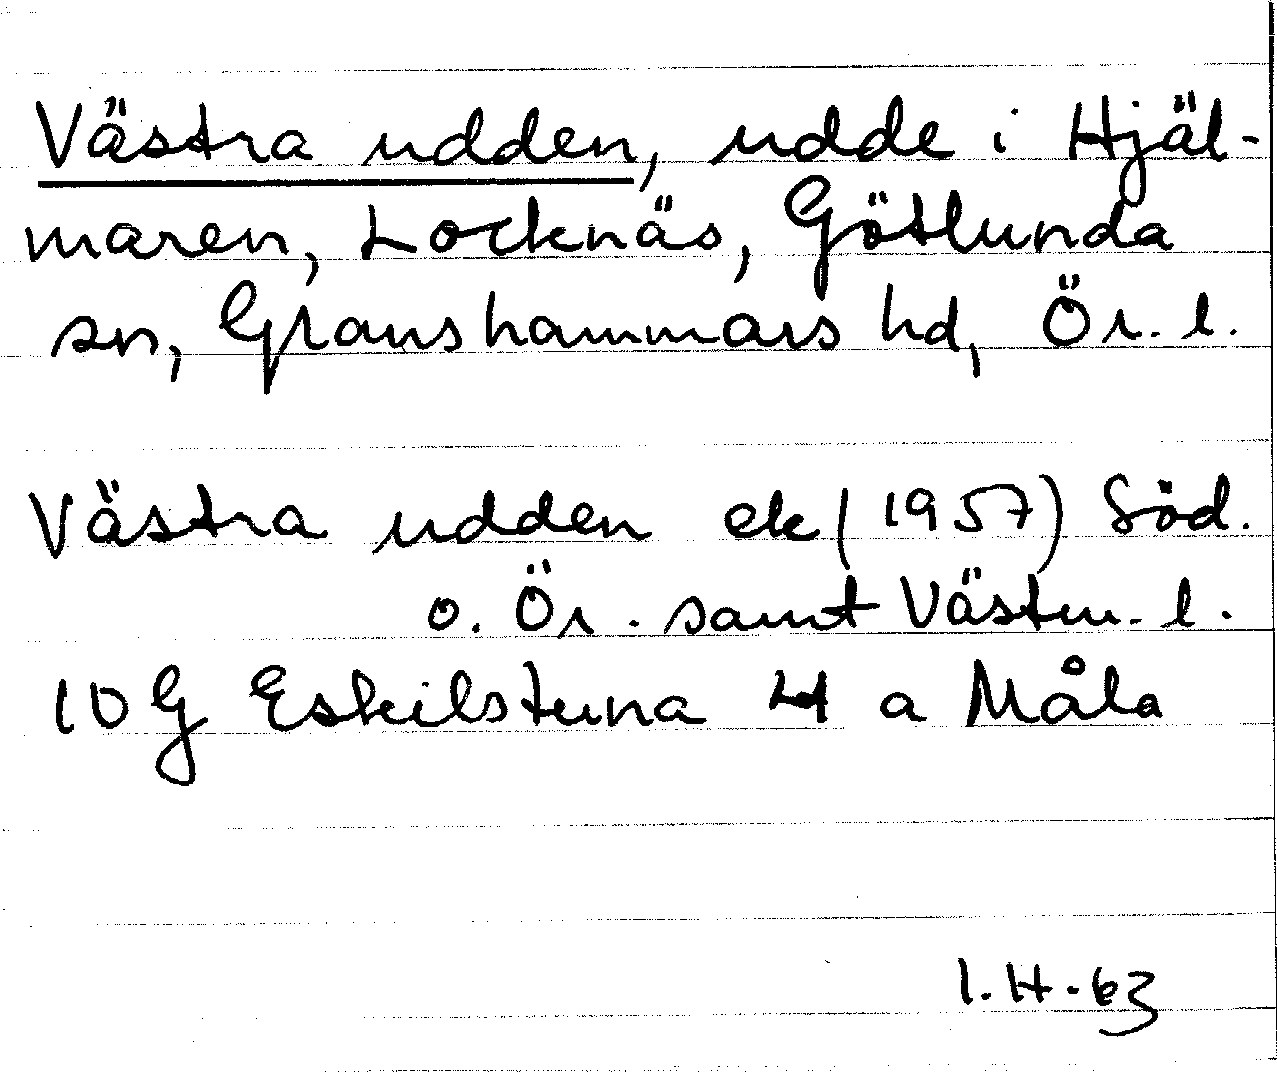 Västra udden, udde i Hjäl-
maren, Locknäs, Götlunda
sn, Glanshammars hd, Ör. l.
Västra udden ek (1957) Söd.
o. Ör. samt Västm. l.
10 G Eskilstuna 4 a Måla
I. H. 63